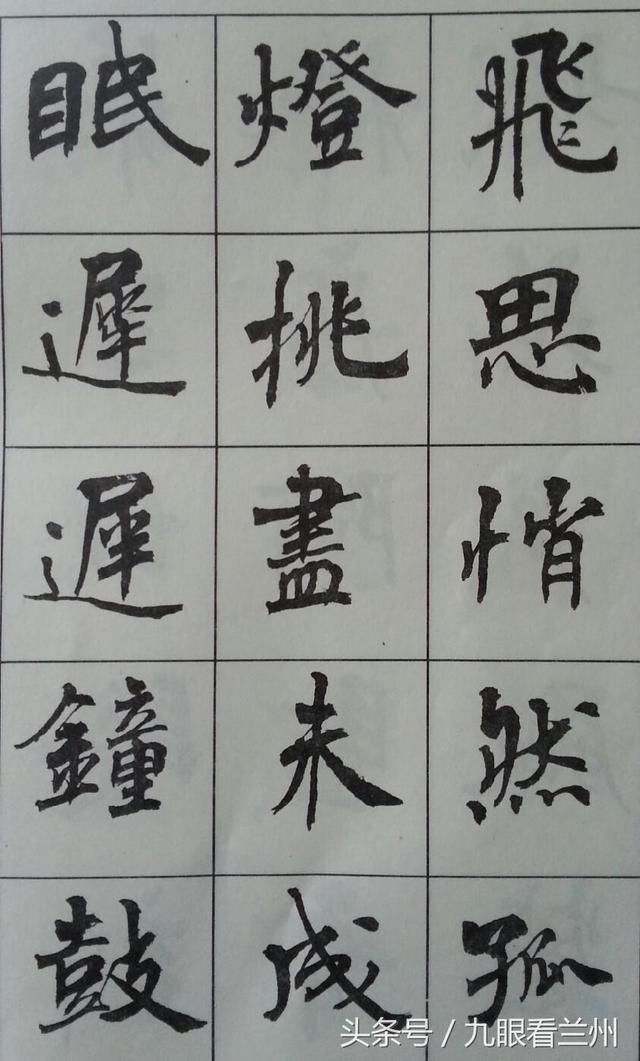 飛思悄然孤
燈挑盡未成
眠遲遲鐘鼓
头条号／九眼看兰州